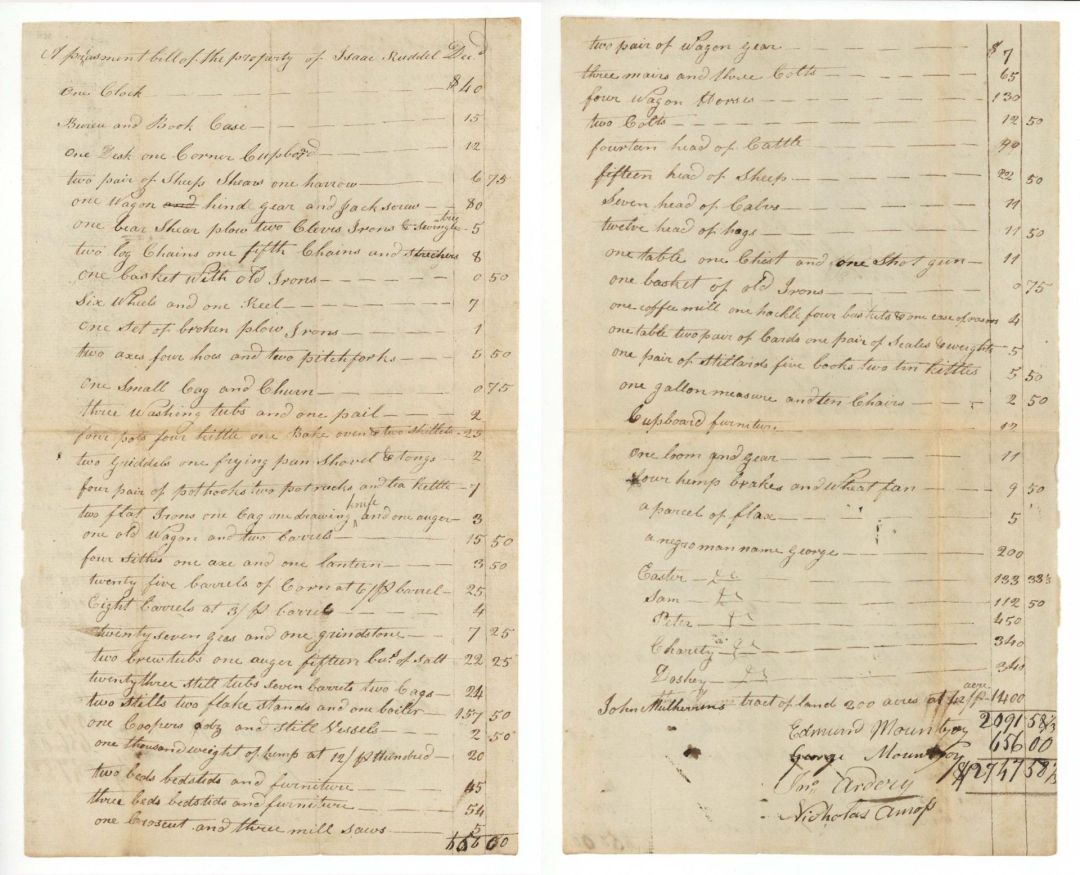 Apraisment bill of the property of Isaac Ruddel Decd
one Clock $40
Bureu and Book Case 15
one Desk one Corner Cupbord 12
two pair of Sheep Shears one harrow 6 75
one Wagon and hind gear and Jack screw 80
one bear Shear plow two Cleves Irons & Swingle tree 5
two log Chains one fifth Chains and strechers 8
one basket with old Irons 0 50
Six Wheels and one Reel 7
one Set of broken plow Irons 1
two axes four hoes and two pitchforks 5 50
one Small Cag and Churn 0 75
three Washing tubs and one pail 2
four pots four kittle one Bake oven & two skillets 25
two Griddels one frying pan Shovel & tongs 2
four pair of pothooks two potracks and tea kettle 7
two flat Irons one Cag one drawing knife and one auger 3
one old Wagon and two barrels 15 50
four Sithes one axe and one lantern 3 50
twenty five barrels of Corn at 6/ pr barrel 25
Eight barrels at 3/ pr barrel 4
twenty seven gees and one grindstone 7 25
two brew tubs one auger fifteen bus. of Salt 22 25
twenty three still tubs Seven barrels two Cags 24
two stills two flake stands and one boiler 157 50
one Coopers adz and Still Vessels 2 50
one thousand weight of hemp at 12/ pr hundred 20
two beds bedstids and furniture 45
three beds bedstids and furniture 54
one Croscut and three mill Saws 5
656 00
two pair of Wagon gear $7
three mairs and three Colts 65
four Wagon Horses 130
two Colts 12 50
fourtan head of Cattle 90
fifteen head of Sheep 22 50
Seven head of Calves 11
twelve head of hogs 11 50
one table one Chist and one Shot gun 11
one basket of old Irons 0 75
one coffee mill one hackle four baskets & one case of rasors 4
one table two pair of Cards one pair of Scales & weights 5
one pair of Stillards five books two tin kittles 5 50
one gallon measure and ten Chairs 2 50
Cupboard furniture 12
one loom and gear 11
four hemp brakes and Wheat fan 9 50
a parcel of flax 5
a negro man name George 200
Easter 133 33⅓
Sam 112 50
Peter 450
Charity 340
Doshey 340
John Mulherrins tract of land 200 acres at 42/ pr acre 1400
2091 58⅓
Edmund Mountjoy
656 00
George Mountjoy
$2747 58⅓
Jno. Ardery
Nicholas Amos